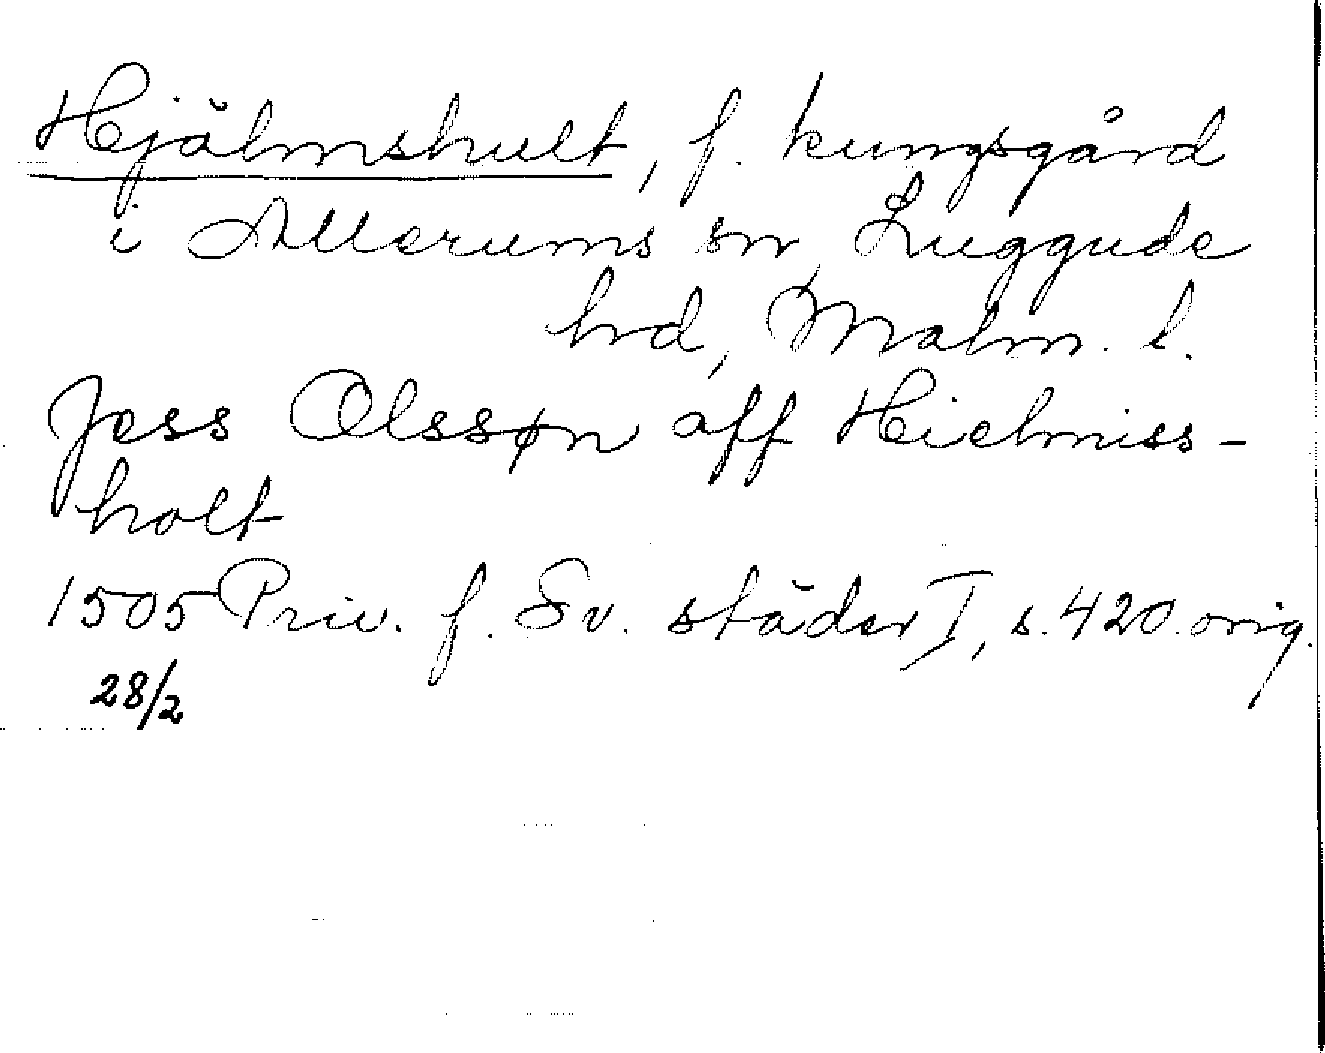 Hjälmshult, f. kungsgård
i Allerums sn, Luggude
hrd, Malm. l.
Jess Olssøn aff Hielmiss-
holt
1505 Priv. f. Sv. städer I, s. 420. orig.
28/2